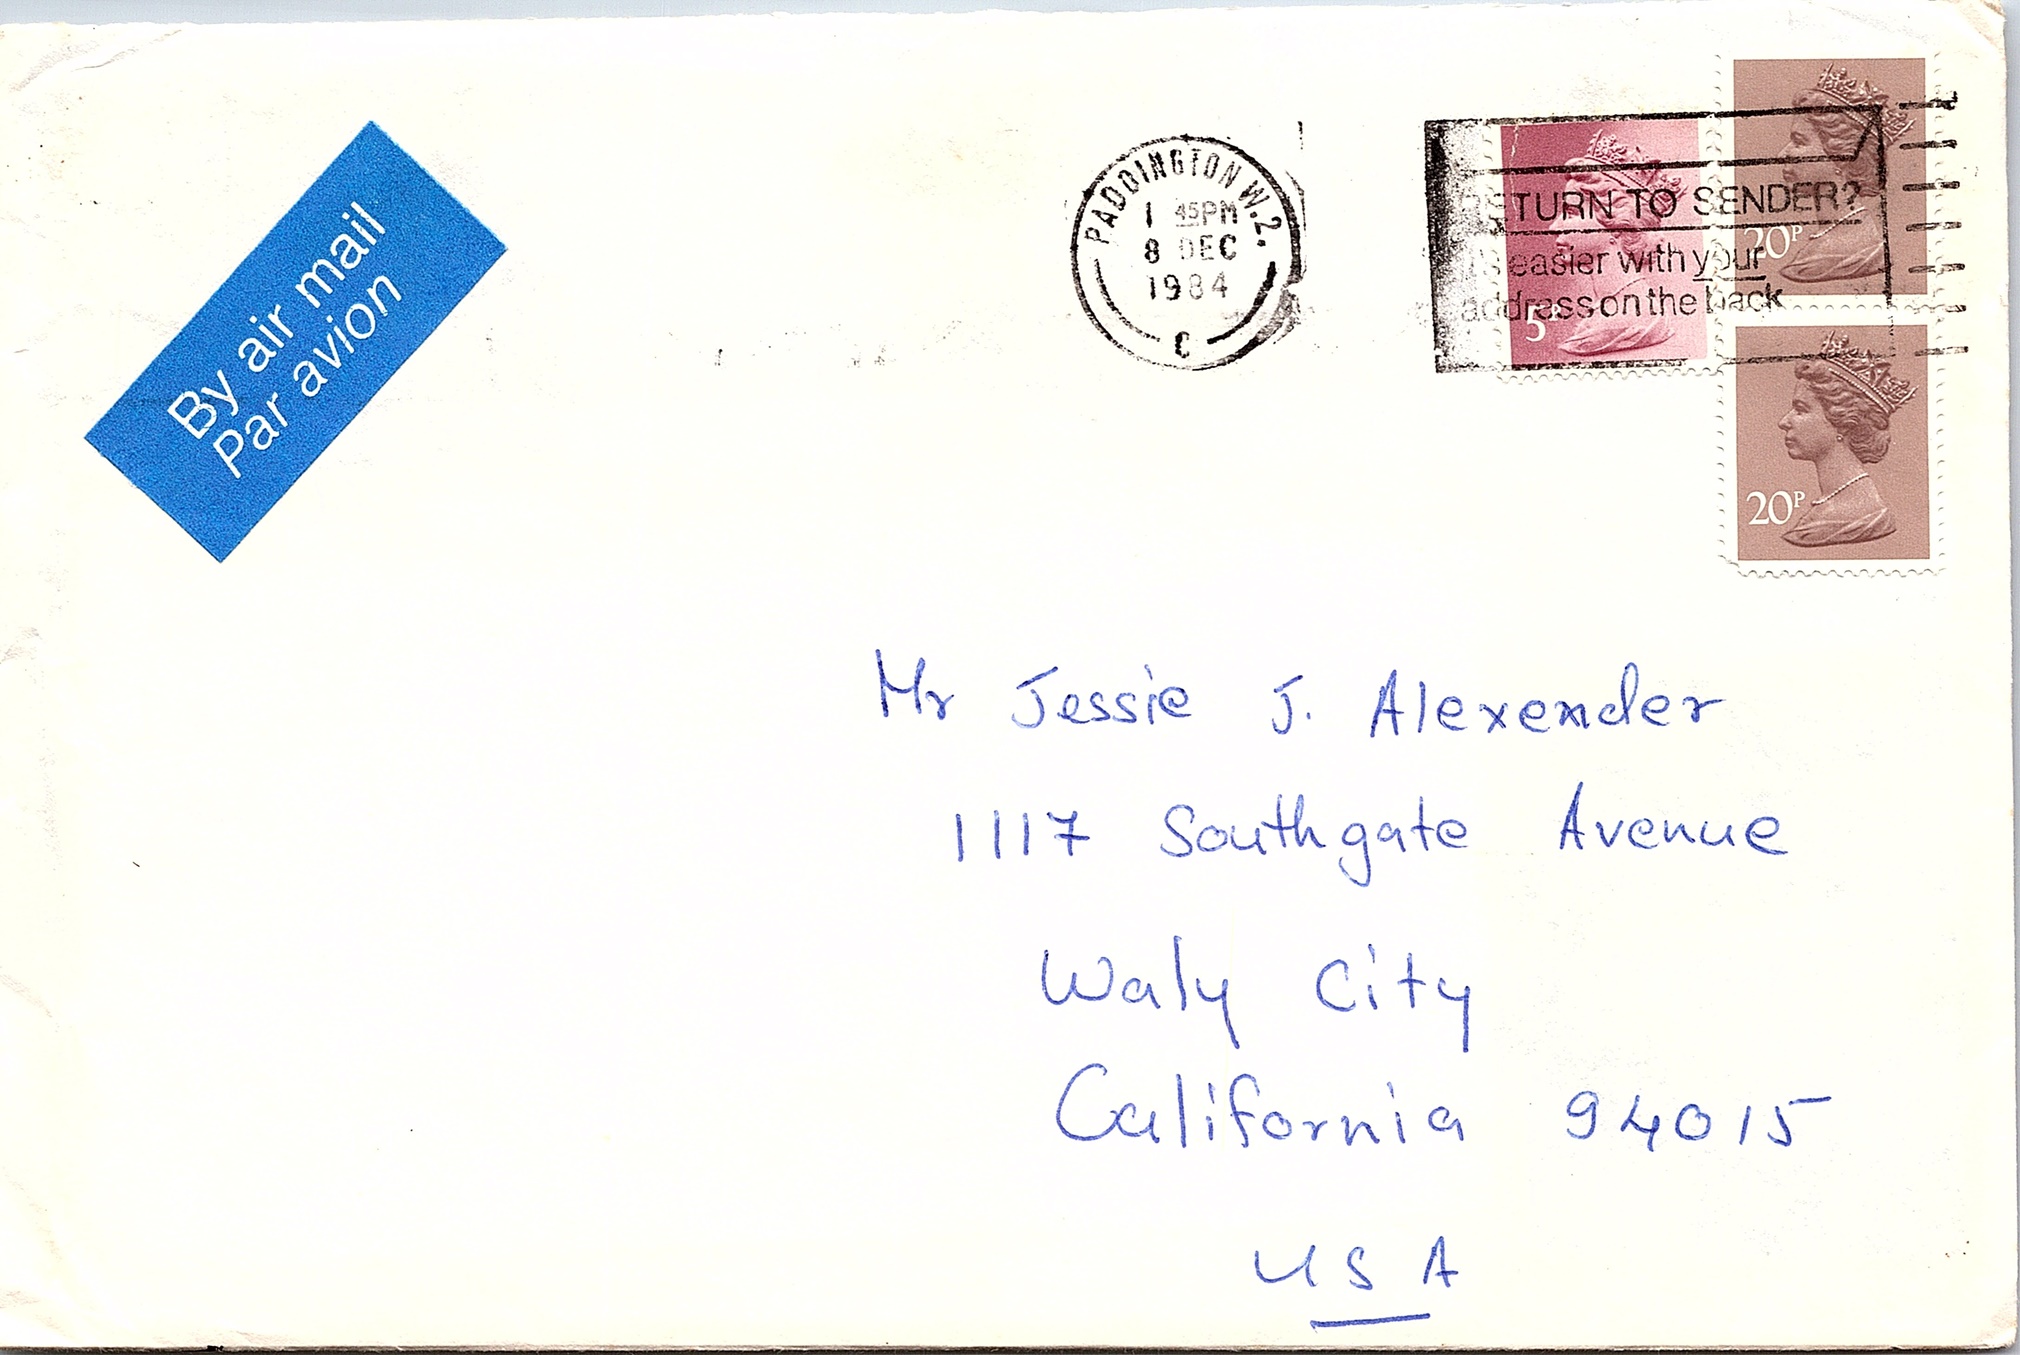 By air mail
Par avion
PADDINGTON W.2.
1 45PM
8 DEC
1984
C
RETURN TO SENDER?
easier with your
address on the back
5P
20P
20P
Mr Jessie J. Alexender
1117 Southgate Avenue
Waly City
California 94015
USA